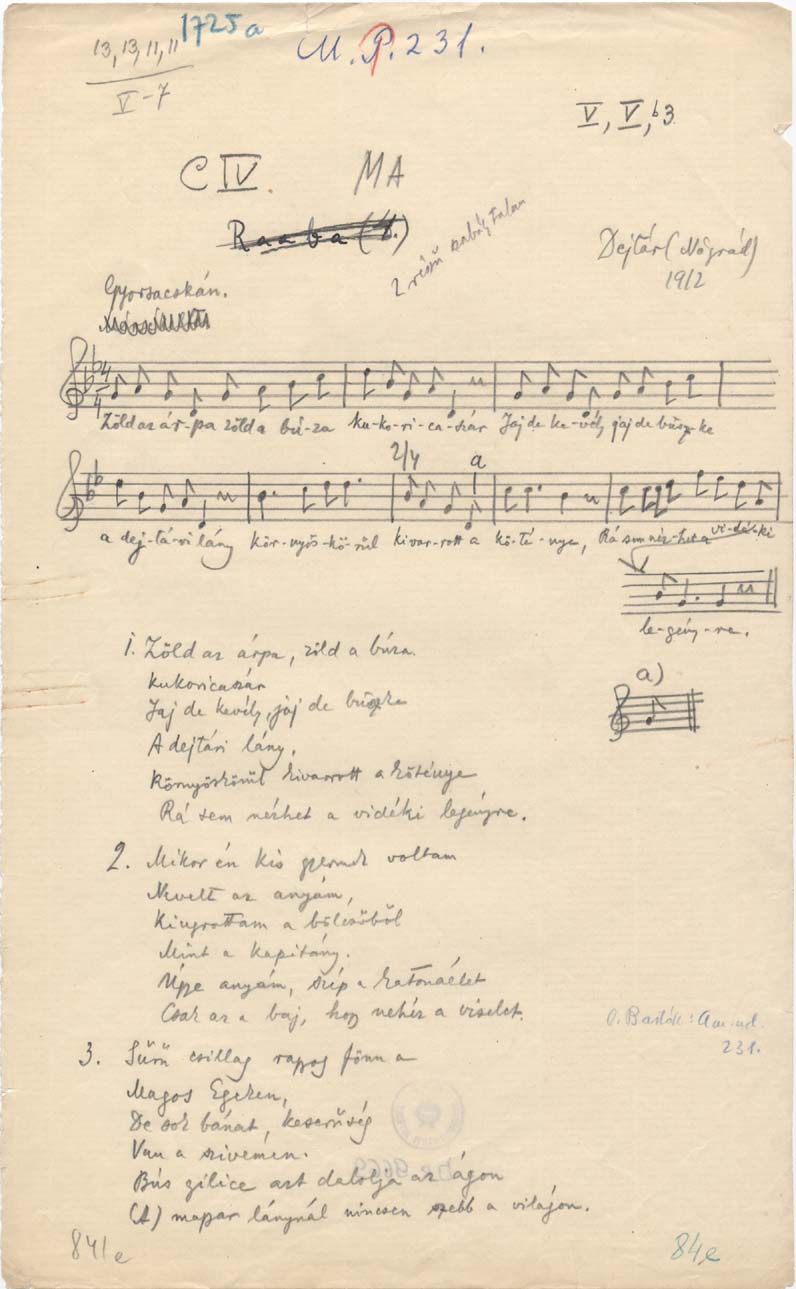 13, 13, 11, 11
V-7
1725a
M. P. 231.
V, V, b3
C IV. MA
Raaba (1.)
2 részű
Dejtár (Nógrád)
1912
Gyorsacskán.
4/4
Zöld az ár-pa zöld a bú-za ku-ko-ri-ca-szár Jaj de ke-vély jaj de büsz-ke
2/4 a
a dej-tá-ri lány kör-nyös-kö-rül kivar-rott a kö-té-nye, Rá sem néz-het a vi-dé-ki
le-gény-re.
a)
1. Zöld az árpa, zöld a búza.
Kukoricaszár
Jaj de kevély, jaj de büszke
A dejtári lány.
Környöskörül kivarrott a köténye
Rá sem nézhet a vidéki legényre.
2. Mikor én kis gyermek voltam
Nevelt az anyám,
Kiugrottam a bölcsőből
Mint a kapitány.
Ugye anyám, szép a katonaélet
Csak az a baj, hogy nehéz a viselet.
B. Bartók: A m. nd.
231.
3. Sűrű csillag ragyog fönn a
Magos Egeken,
De sok bánat, keserűség
Van a szivemén.
Bús gilice azt dalolja az ágon
(A) magyar lánynál nincsen szebb a világon.
841e
84e